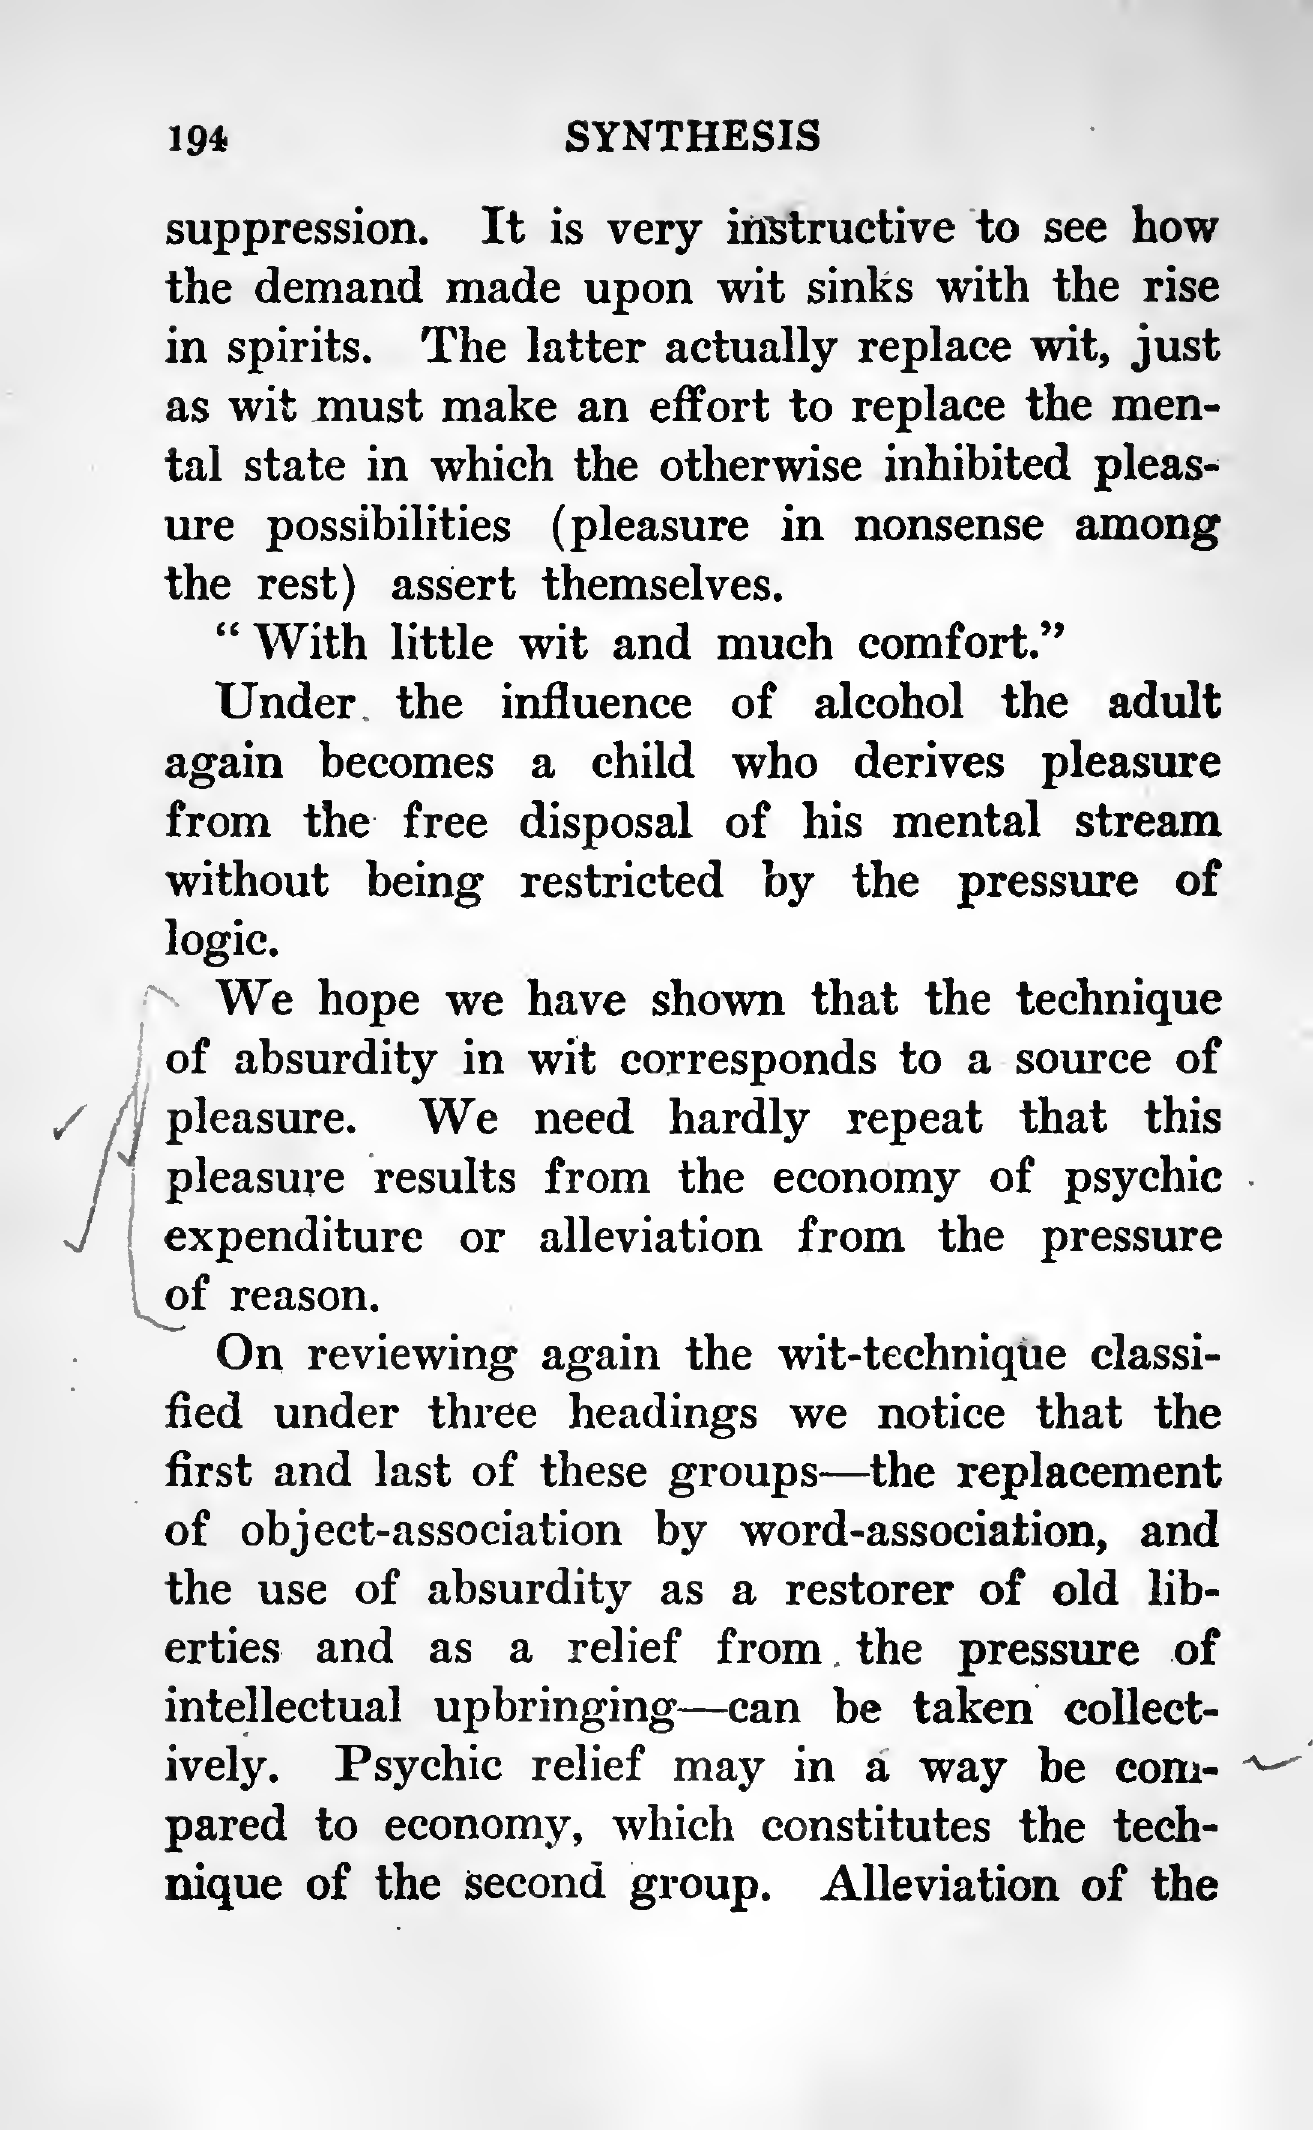 194 SYNTHESIS
suppression. It is very instructive to see how
the demand made upon wit sinks with the rise
in spirits. The latter actually replace wit, just
as wit must make an effort to replace the men-
tal state in which the otherwise inhibited pleas-
ure possibilities (pleasure in nonsense among
the rest) assert themselves.
“ With little wit and much comfort.”
Under the influence of alcohol the adult
again becomes a child who derives pleasure
from the free disposal of his mental stream
without being restricted by the pressure of
logic.
We hope we have shown that the technique
of absurdity in wit corresponds to a source of
pleasure. We need hardly repeat that this
pleasure results from the economy of psychic
expenditure or alleviation from the pressure
of reason.
On reviewing again the wit-technique classi-
fied under three headings we notice that the
first and last of these groups—the replacement
of object-association by word-association, and
the use of absurdity as a restorer of old lib-
erties and as a relief from the pressure of
intellectual upbringing—can be taken collect-
ively. Psychic relief may in a way be com-
pared to economy, which constitutes the tech-
nique of the second group. Alleviation of the